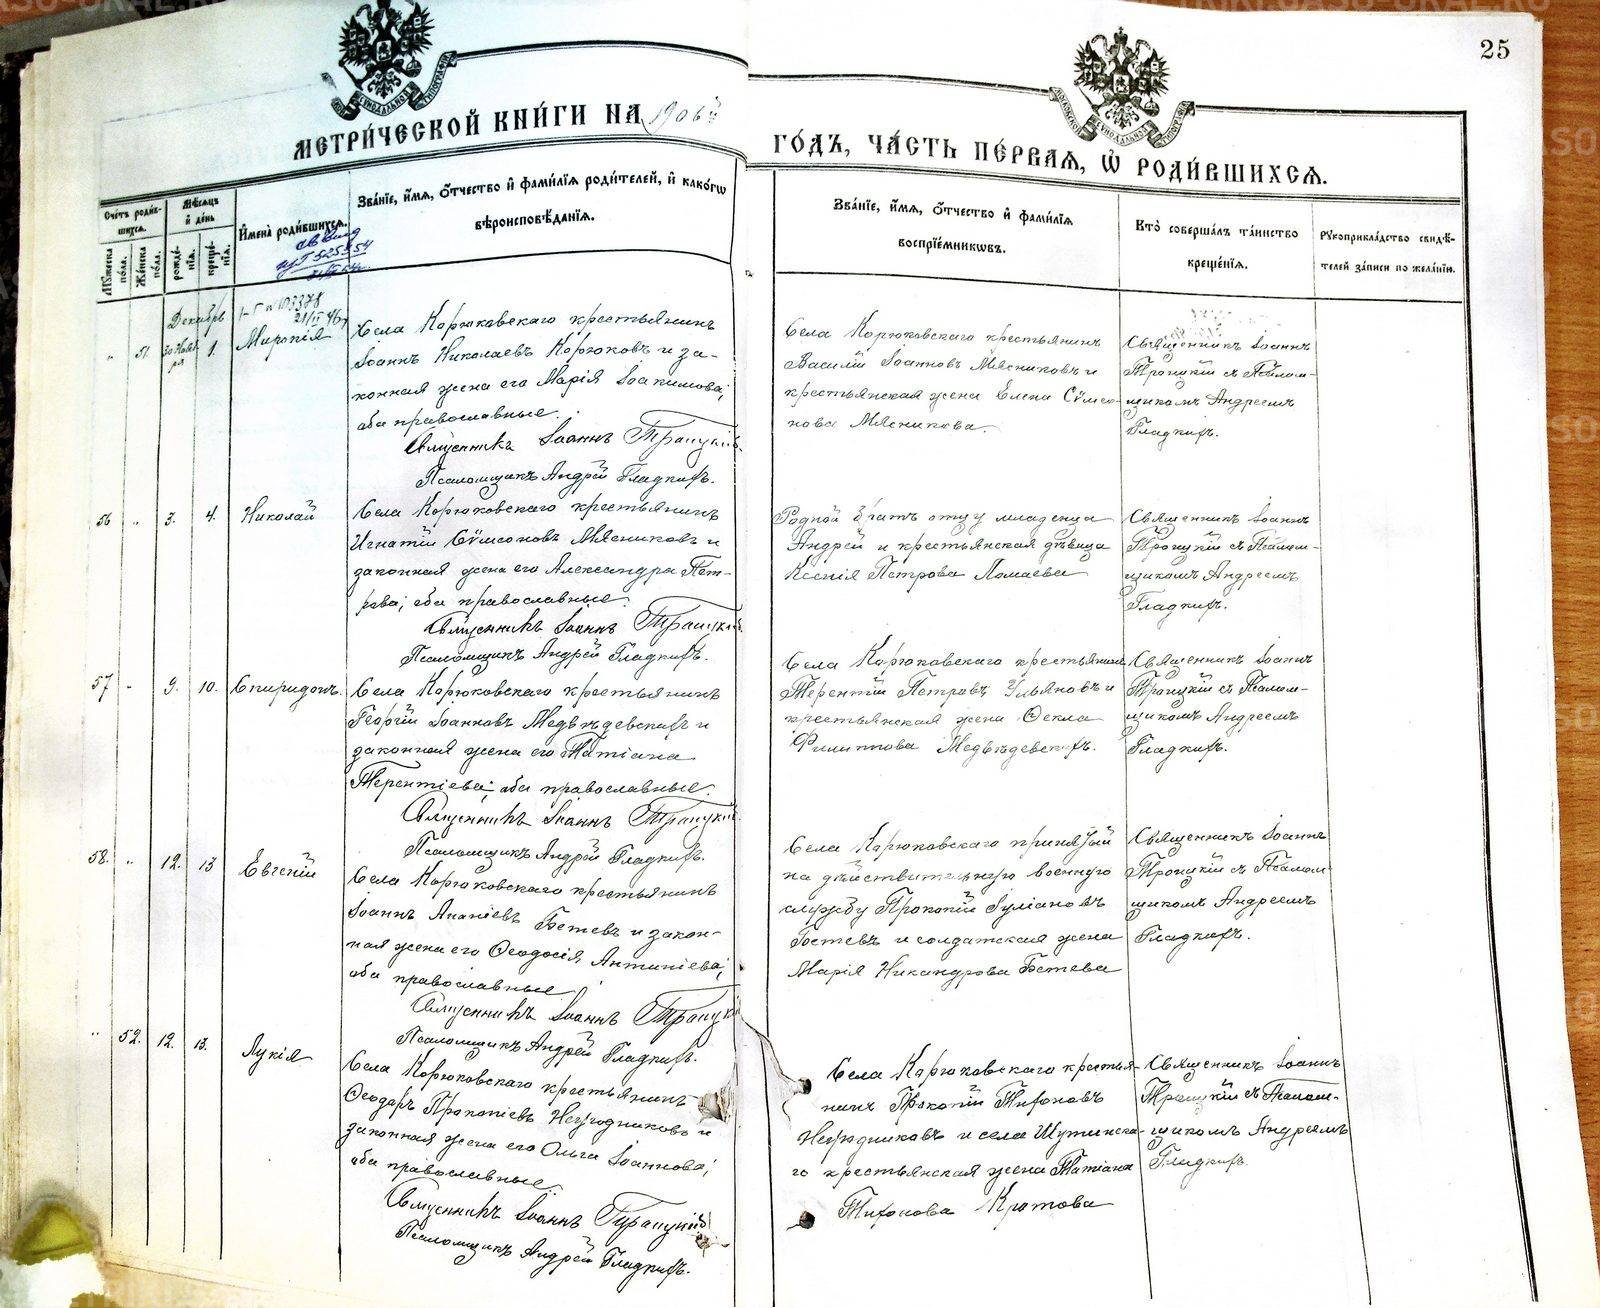 25
МЕТРИ́ЧЕСКОЙ КНИ́ГИ НА 1906й
ГО́ДЪ, ЧА́СТЬ ПЕ́РВАѦ, Ѡ҆ РОДИ́ВШИХСѦ.
Сче́тъ роди́в-
шихсѧ.
Мꙋ́жеска по́ла.
Же́нска по́ла.
Мѣ́сѧцъ и҆ де́нь
рожде́нїѧ.
креще́нїѧ.
И҆мена̀ роди́вшихсѧ.
Зва́нїе, и҆́мѧ, ѻ҆́тчество и҆ фами́лїѧ роди́телей, и҆ како́гѡ
вѣроисповѣ́данїѧ.
Зва́нїе, и҆́мѧ, ѻ҆́тчество и҆ фами́лїѧ
воспрїе́мникѡвъ.
Кто̀ соверша́лъ та́инство
креще́нїѧ.
Рꙋкоприкла́дство свидѣ́-
телей за́писи по жела́нїю.
Декабрь
" 51. 30 Ноября 1. Миропія
Села Корюковскаго крестьянинъ
Іоаннъ Николаевъ Корюковъ и за-
конная жена его Марія Іоакимова;
оба православные.
Священникъ Іоаннъ Троицкій
Псаломщикъ Андрей Гладкихъ.
Села Корюковскаго крестьянинъ
Василій Іоанновъ Мясниковъ и
крестьянская жена Елена Сѵмео-
нова Мясникова.
Священникъ Іоаннъ
Троицкій съ Псалом-
щикомъ Андреемъ
Гладкихъ.
56 " 3. 4. Николай
Села Корюковскаго крестьянинъ
Игнатій Сѵмеоновъ Мясниковъ и
законная жена его Александра Пет-
рова; оба православные.
Священникъ Іоаннъ Троицкій
Псаломщикъ Андрей Гладкихъ.
Родной братъ отцу младенца
Андрей и крестьянская дѣвица
Ксенія Петрова Ломаева
Священникъ Іоаннъ
Троицкій съ Псалом-
щикомъ Андреемъ
Гладкихъ.
57 " 9. 10. Спиридонъ.
Села Корюковскаго крестьянинъ
Георгій Іоанновъ Медвѣдевскихъ и
законная жена его Татіана
Терентіева; оба православные.
Священникъ Іоаннъ Троицкій
Псаломщикъ Андрей Гладкихъ.
Села Корюковскаго крестьянинъ
Терентій Петровъ Ульяновъ и
крестьянская жена Ѳекла
Филиппова Медвѣдевскихъ.
Священникъ Іоаннъ
Троицкій съ Псалом-
щикомъ Андреемъ
Гладкихъ.
58. " 12. 13 Евгеній
Села Корюковскаго крестьянинъ
Іоаннъ Ананіевъ Бетевъ и закон-
ная жена его Ѳеодосія Антипіева;
оба православные.
Священникъ Іоаннъ Троицкій
Псаломщикъ Андрей Гладкихъ.
Села Корюковскаго принятый
на дѣйствительную военную
службу Прокопій Іуліановъ
Бетевъ и солдатская жена
Марія Никандрова Бетева
Священникъ Іоаннъ
Троицкій съ Псалом-
щикомъ Андреемъ
Гладкихъ.
" 52. 12. 13. Лукія
Села Корюковскаго крестьянинъ
Ѳеодоръ Прокопіевъ Негодниковъ и
законная жена его Ольга Іоаннова;
оба православные.
Священникъ Іоаннъ Троицкій
Псаломщикъ Андрей Гладкихъ.
Села Корюковскаго крестья-
нинъ Прокопій Тихоновъ
Негодниковъ и села Шутинска-
го крестьянская жена Татіана
Тихонова Кротова
Священникъ Іоаннъ
Троицкій съ Псалом-
щикомъ Андреемъ
Гладкихъ.